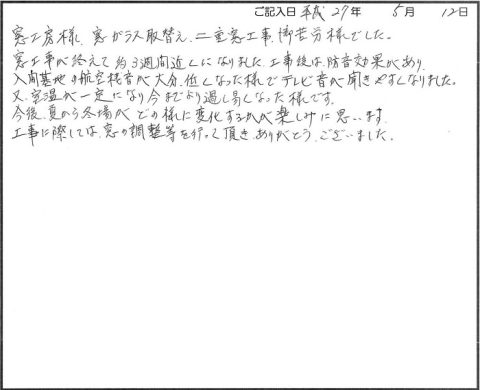 ご記入日 平成 27年 5月 12日
窓工房様、窓ガラス取替え、二重窓工事、御苦労様でした。
窓工事が終えて約3週間近くになりました。工事後は、防音効果があり、
入間基地の航空機音が大分、低くなった様でテレビ音が聞きやすくなりました。
又、室温が一定になり今までより過し易くなった様です。
今後、夏から冬場がどの様に変化するかが楽しみに思います。
工事に際しては、窓の調整等を行って頂き、ありがとうございました。